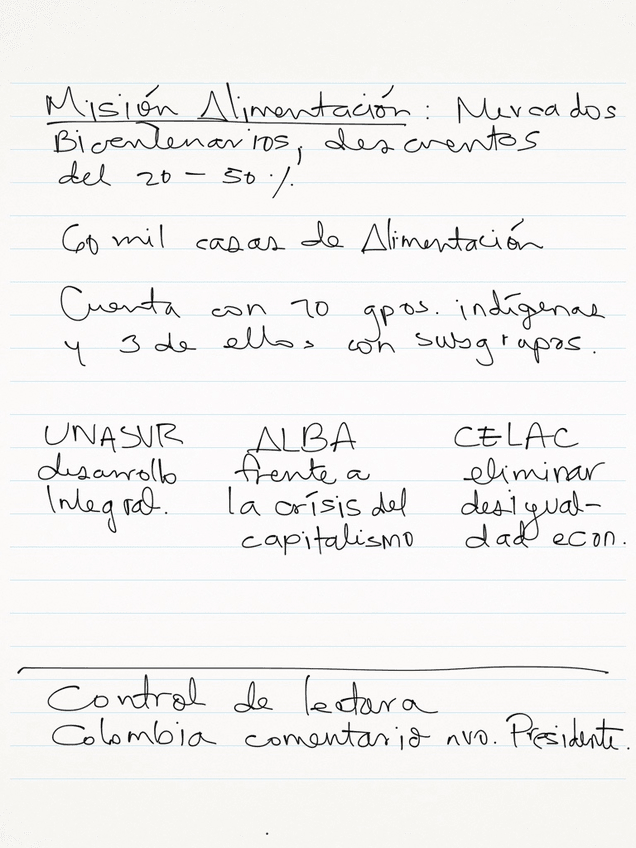 Misión Alimentación: Mercados
Bicentenarios, descuentos
del 20 - 50 %
60 mil casas de Alimentación
Cuenta con 70 gpos. indígenas
y 3 de ellos con subgrupos.
UNASUR ALBA CELAC
desarrollo frente a eliminar
Integral. la crisis del desigual-
capitalismo dad econ.
Control de lectura
Colombia comentario nvo. Presidente.